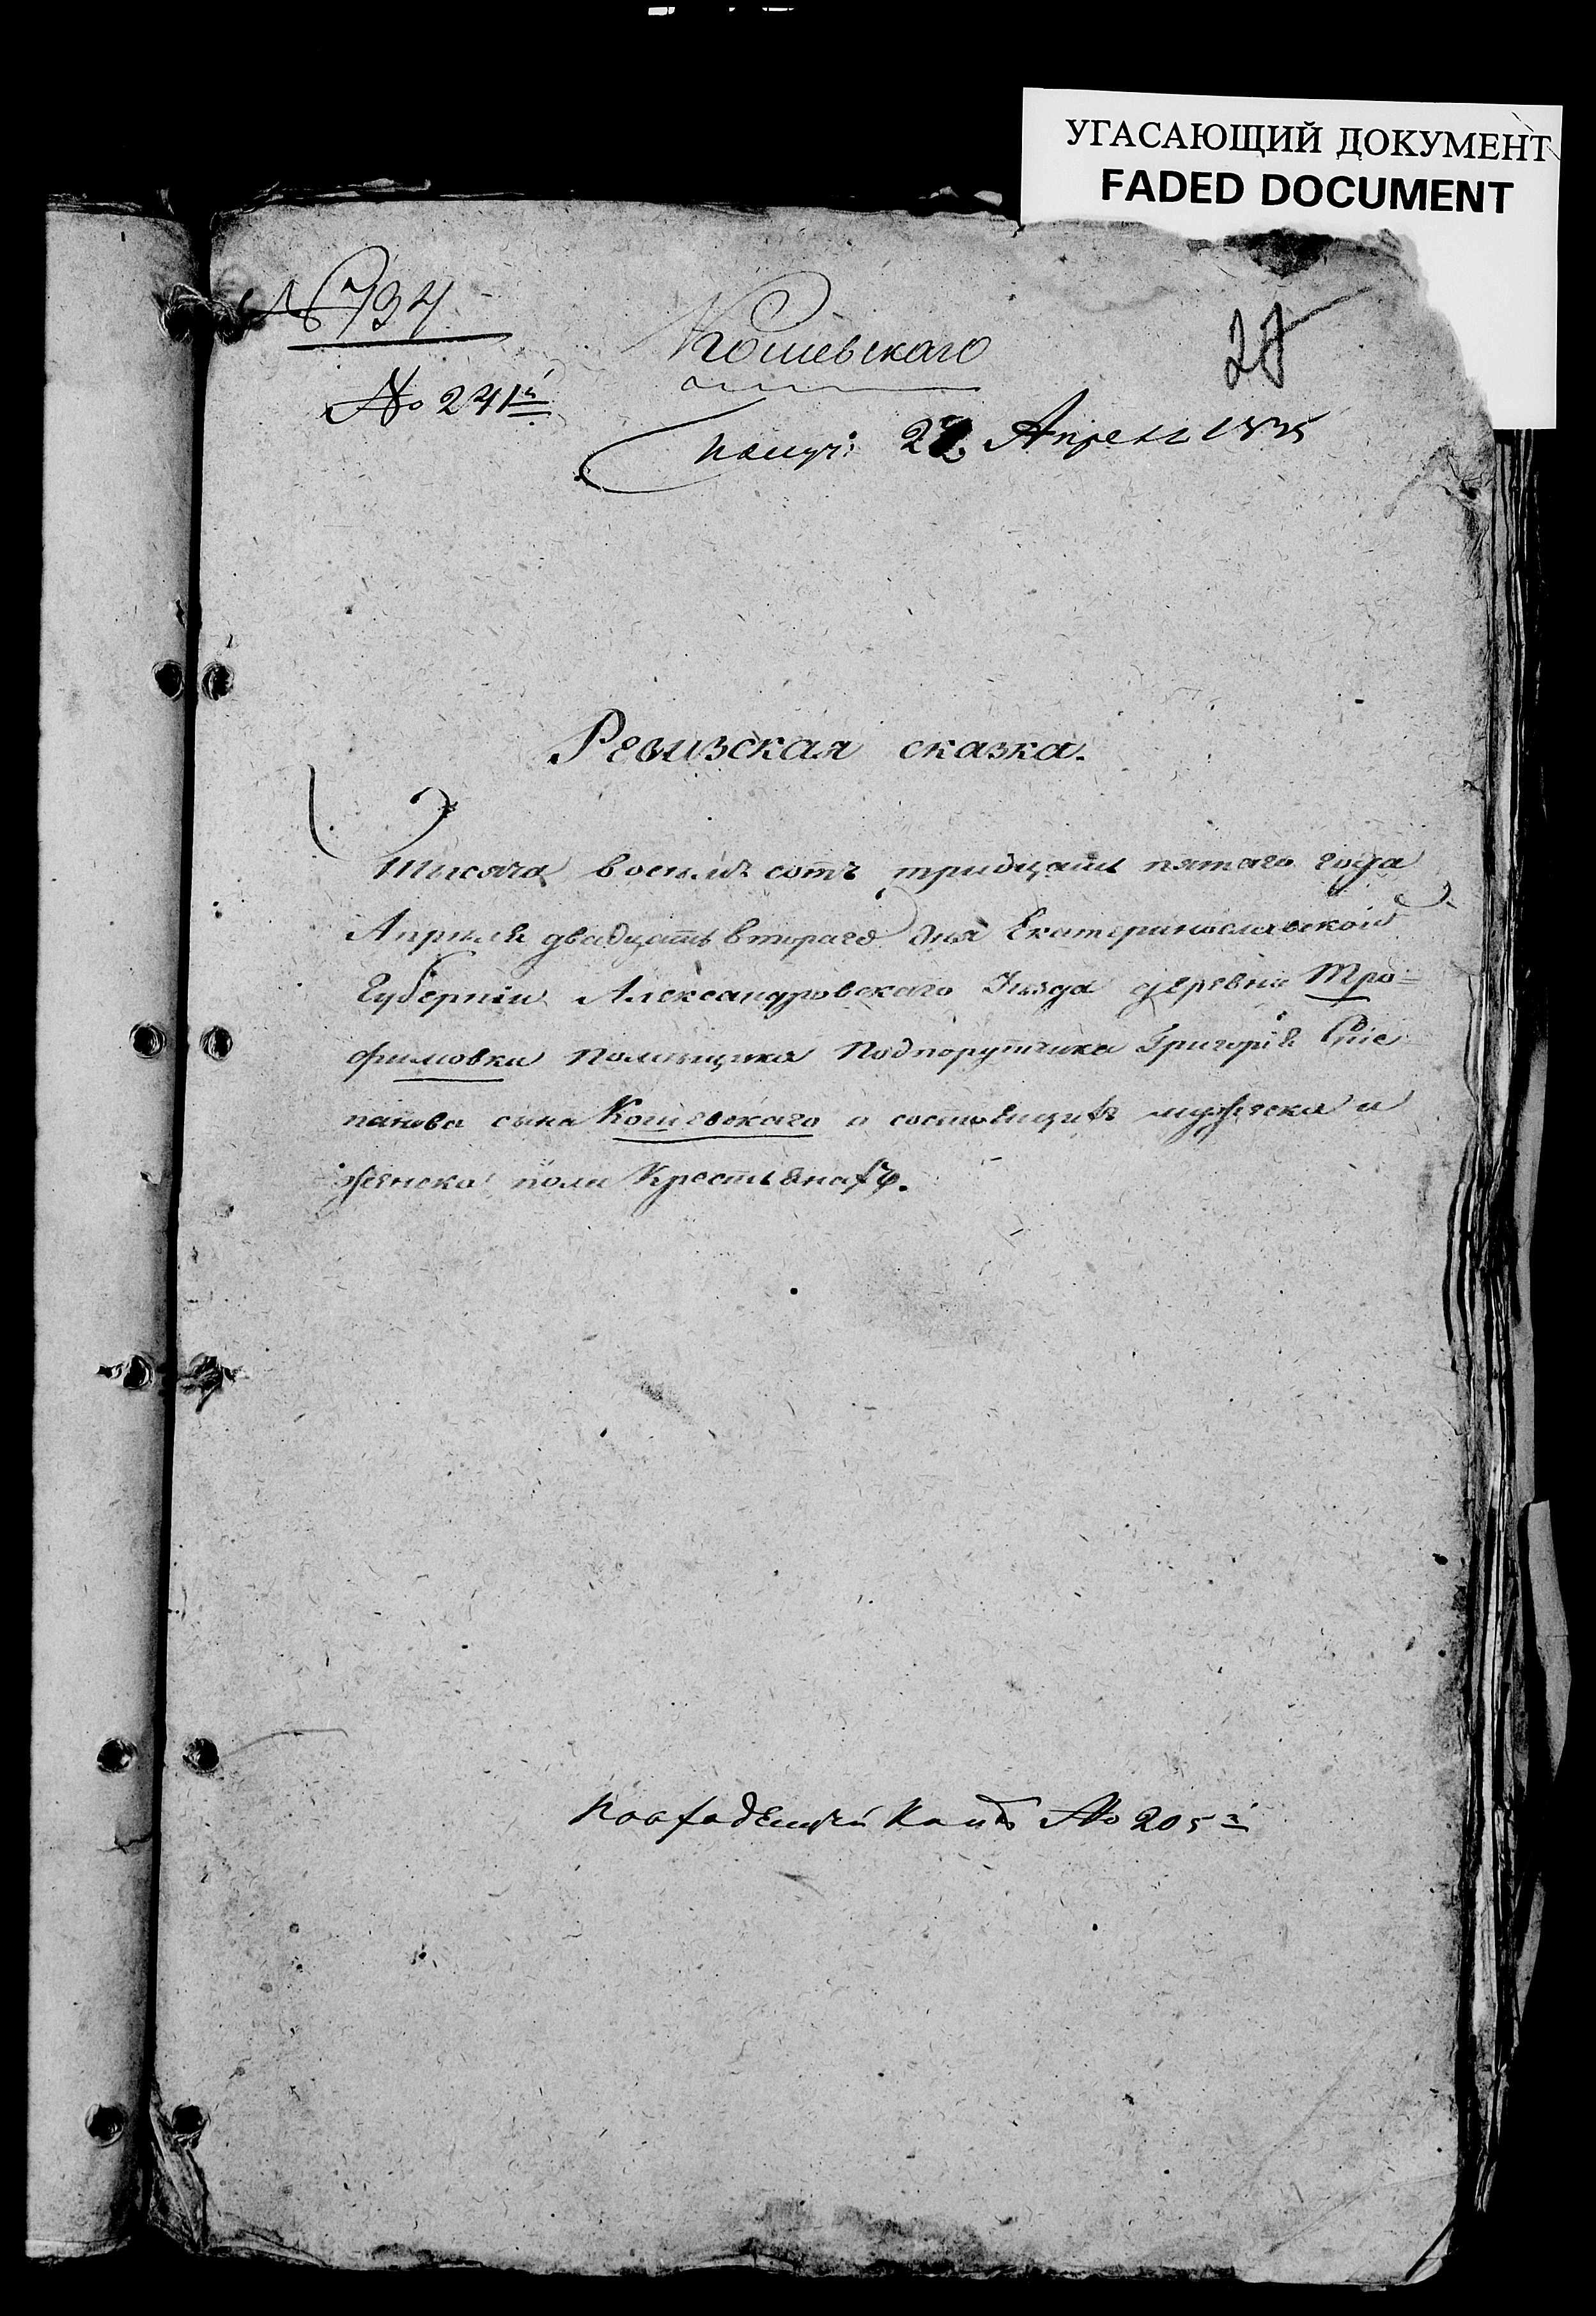 УГАСАЮЩИЙ ДОКУМЕНТ
FADED DOCUMENT
№ 734
Кошевскаго
28
№ 241й
получ: 22 Апреля 1835
Ревизская сказка.
Тысяча восемъ сотъ тридцать пятаго года
Апреля двадцать втораго дня Екатеринославской
Губерніи Александровскаго Уезда деревни Тро=
фимовки Помещика Подпорутчика Григорія Сте
панова сына Кошевскаго о состоящихъ мужеска и
женска пола Крестьянахъ.
№ 205й